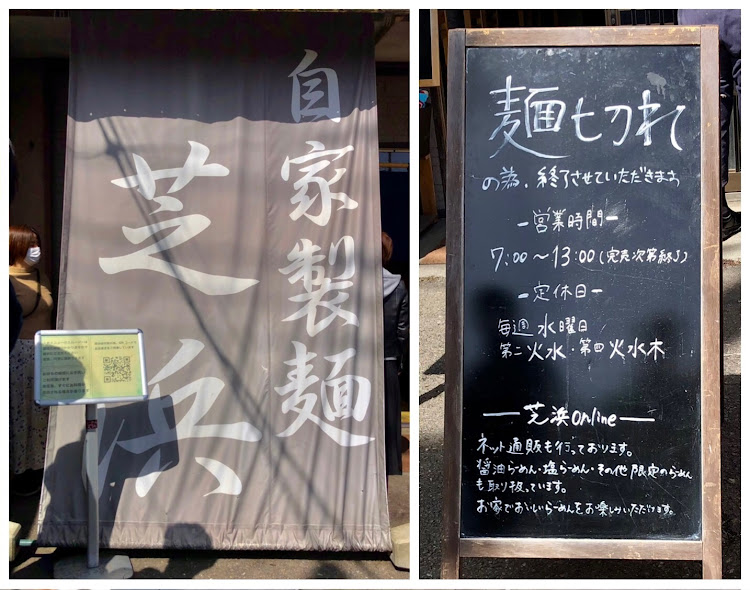 自家製麺
芝浜
麺切れ
の為、終了させていただきます
ー営業時間ー
7:00〜13:00(完売次第終了)
ー定休日ー
毎週 水曜日
第二 火水・第四 火水木
ー芝浜onlineー
ネット通販も行っております。
醤油らぁめん・塩らぁめん・その他限定のらぁめん
も取り扱っています。
お家でおいしいらぁめんをお楽しみいただけます。